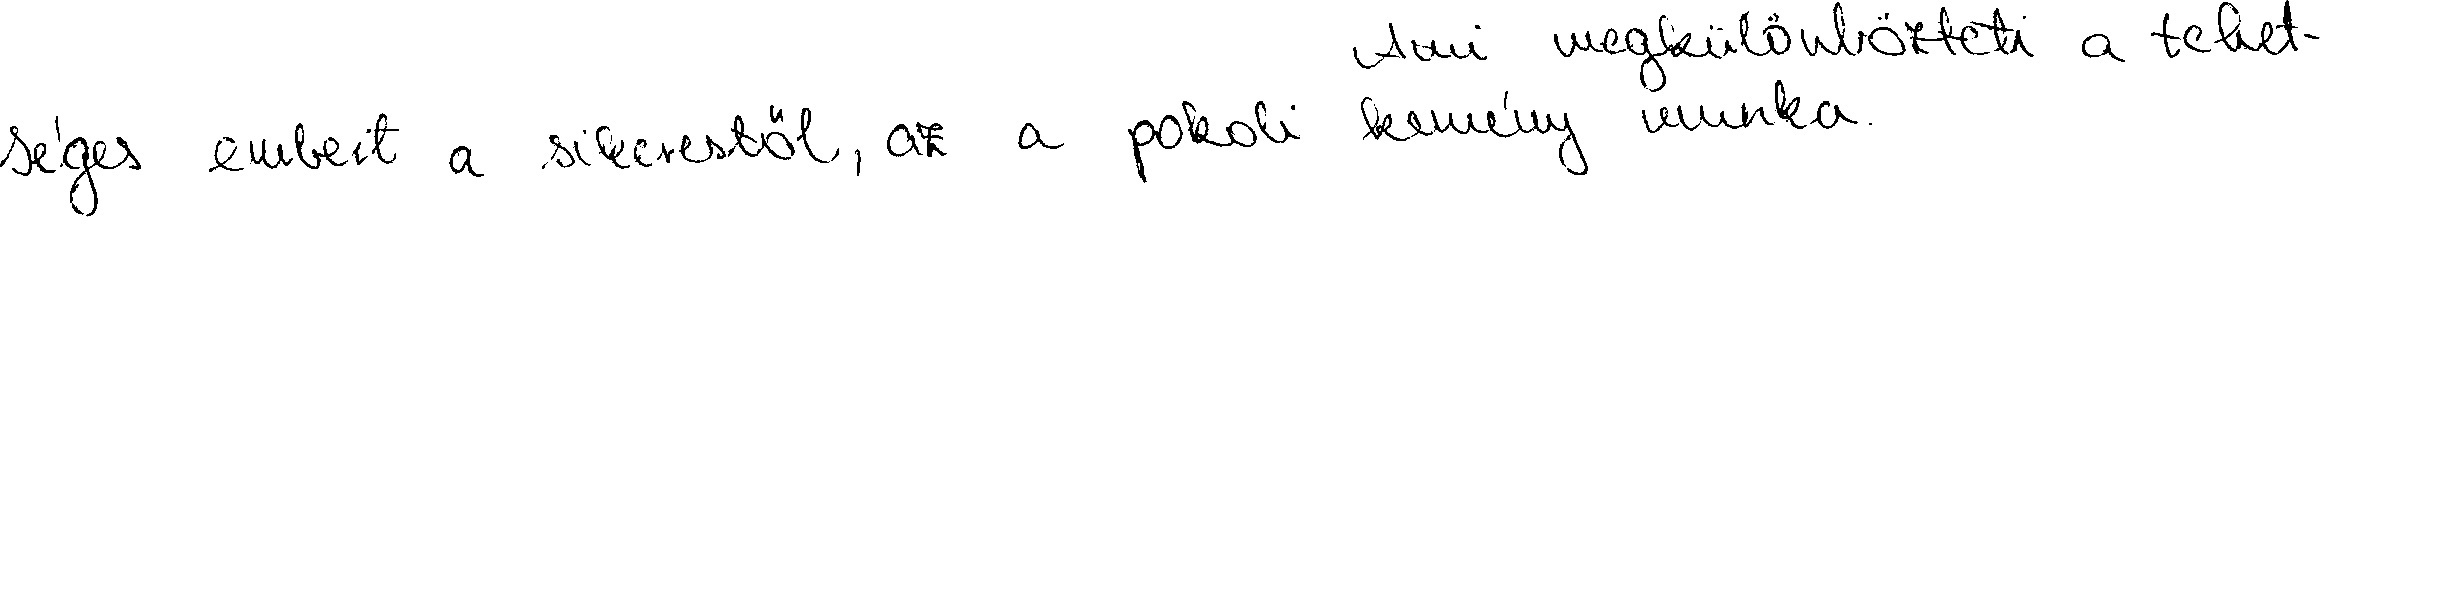 Ami megkülönbözteti a tehet-
séges embert a sikerestől, az a pokoli kemény munka.